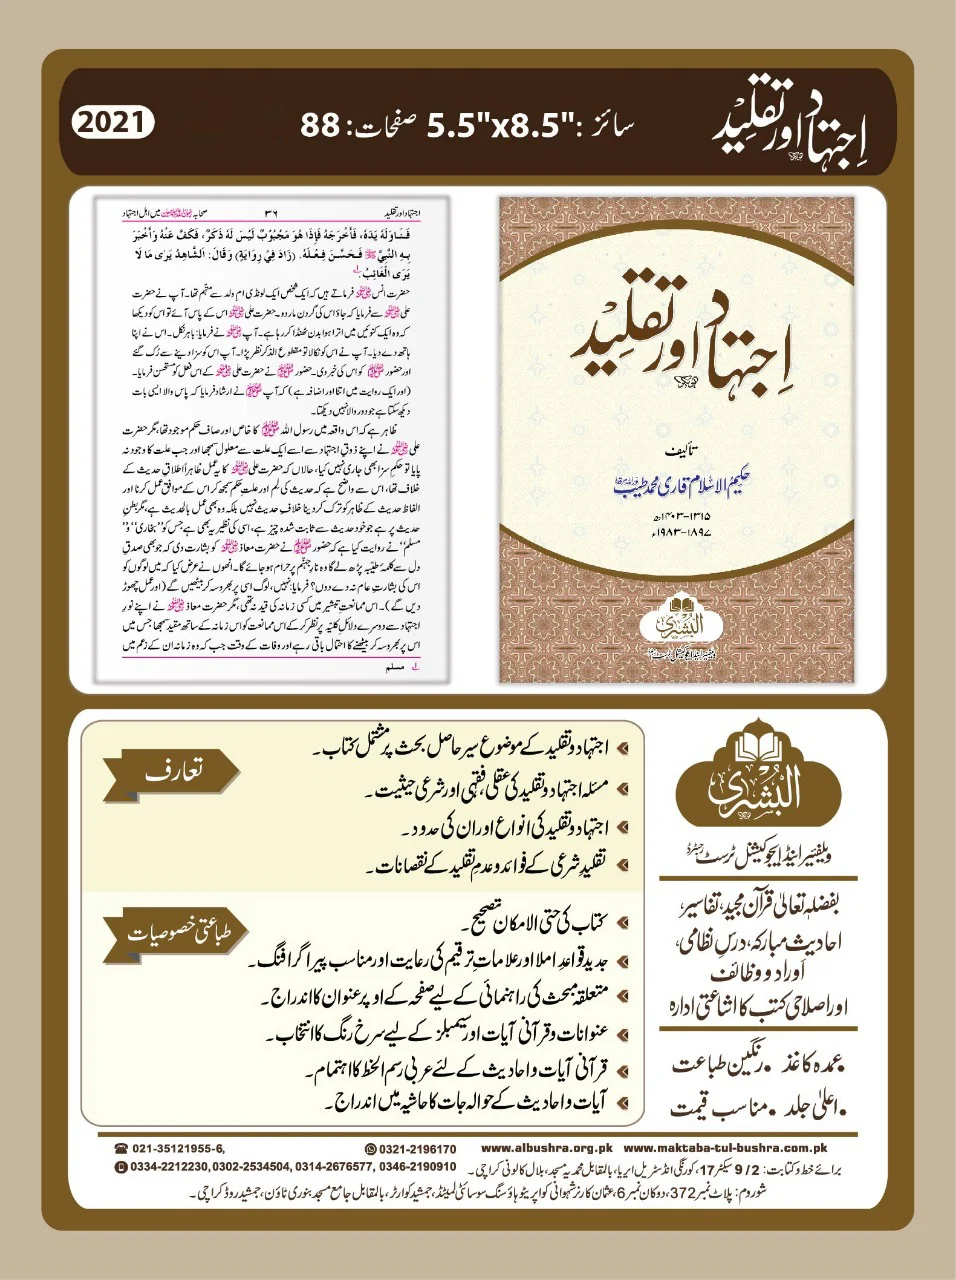 اجتہاد اور تقلید
سائز: "5.5"x8.5 صفحات: 88
2021
اجتہاد اور تقلید
۳۶
صحابہ رضی اللہ عنہم میں اہلِ اجتہاد
فَنَاوَلَهُ يَدَهُ، فَأَخْرَجَهُ فَإِذَا هُوَ مَجْبُوْبٌ لَيْسَ لَهُ ذَكَرٌ، فَكَفَّ عَنْهُ وَأَخْبَرَ
بِهِ النَّبِيَّ ﷺ فَحَسَّنَ فِعْلَهُ. (زَادَ فِيْ رِوَايَةٍ) وَقَالَ: اَلشَّاهِدُ يَرٰى مَا لَا
يَرَى الْغَائِبُ. لے
حضرت انس رضی اللہ عنہ فرماتے ہیں کہ ایک شخص ایک لونڈی ام ولد سے متہم تھا۔ آپ نے حضرت
علی رضی اللہ عنہ سے فرمایا کہ جاؤ اس کی گردن مار دو۔ حضرت علی رضی اللہ عنہ اس کے پاس آئے تو اس کو دیکھا
کہ وہ ایک کنوئیں میں اترا ہوا بدن ٹھنڈا کر رہا ہے۔ آپ رضی اللہ عنہ نے فرمایا: باہر نکل۔ اس نے اپنا
ہاتھ دے دیا۔ آپ نے اس کو نکالا تو مقطوع الذکر نظر پڑا۔ آپ اس کو سزا دینے سے رُک گئے
اور حضور ﷺ کو اس کی خبر دی۔ حضور ﷺ نے حضرت علی رضی اللہ عنہ کے اس فعل کو مستحسن فرمایا۔
(اور ایک روایت میں اتنا اور اضافہ ہے) کہ آپ ﷺ نے ارشاد فرمایا کہ پاس والا ایسی بات
دیکھ سکتا ہے جو دور والا نہیں دیکھتا۔
ظاہر ہے کہ اس واقعہ میں رسول اللہ ﷺ کا خاص اور صاف حکم موجود تھا، مگر حضرت
علی رضی اللہ عنہ نے اپنے ذوقِ اجتہاد سے اسے ایک علت سے معلول سمجھا اور جب علت کا وجود نہ
پایا تو حکم سزا بھی جاری نہیں کیا، حالاں کہ حضرت علی رضی اللہ عنہ کا یہ عمل ظاہراً اطلاقِ حدیث کے
خلاف تھا، اس سے واضح ہے کہ حدیث کی لِم اور علتِ حکم سمجھ کر اس کے موافق عمل کرنا اور
الفاظ حدیث کے ظاہر کو ترک کر دینا خلافِ حدیث نہیں بلکہ وہ بھی عمل بالحدیث ہے، مگر بطنِ
حدیث پر ہے جو خود حدیث سے ثابت شدہ چیز ہے، اسی کی نظیر یہ بھی ہے جس کو ”بخاری“ و”
مسلم“ نے روایت کیا ہے کہ حضور ﷺ نے حضرت معاذ رضی اللہ عنہ کو بشارت دی کہ جو بھی صدقِ
دل سے کلمۂ طیبہ پڑھ لے گا وہ نارِ جہنم پر حرام ہو جائے گا۔ انھوں نے عرض کیا کہ میں لوگوں کو
اس کی بشارتِ عام نہ دے دوں؟ فرمایا: نہیں، لوگ اسی پر بھروسہ کر بیٹھیں گے (اور عمل چھوڑ
دیں گے)۔ اس ممانعتِ تبشیر میں کسی زمانہ کی قید نہ تھی، مگر حضرت معاذ رضی اللہ عنہ نے اپنے نورِ
اجتہاد سے دوسرے دلائلِ کلیہ پر نظر کر کے اس ممانعت کو اس زمانہ کے ساتھ مقید سمجھا جس میں
اس پر بھروسہ کر بیٹھنے کا احتمال باقی رہے اور وفات کے وقت جب کہ وہ زمانہ ان کے زعم میں
لے مسلم
اجتہاد اور تقلید
تألیف
حکیم الاسلام قاری محمد طیب
۱۳۱۵-۱۴۰۳ھ
۱۸۹۷-۱۹۸۳ء
البشریٰ
ویلفیئر اینڈ ایجوکیشنل ٹرسٹ
تعارف
اجتہاد و تقلید کے موضوع سیر حاصل بحث پر مشتمل کتاب۔
مسئلہ اجتہاد و تقلید کی عقلی، فقہی اور شرعی حیثیت۔
اجتہاد و تقلید کی انواع اور ان کی حدود۔
تقلیدِ شرعی کے فوائد و عدمِ تقلید کے نقصانات۔
طباعتی خصوصیات
کتاب کی حتی الامکان تصحیح۔
جدید قواعدِ املا اور علاماتِ ترقیم کی رعایت اور مناسب پیراگرافنگ۔
متعلقہ مبحث کی راہنمائی کے لیے صفحہ کے اوپر عنوان کا اندراج۔
عنوانات و قرآنی آیات اور سیمبلز کے لیے سرخ رنگ کا انتخاب۔
قرآنی آیات و احادیث کے لئے عربی رسم الخط کا اہتمام۔
آیات و احادیث کے حوالہ جات کا حاشیہ میں اندراج۔
البشریٰ
ویلفیئر اینڈ ایجوکیشنل ٹرسٹ رجسٹرڈ
بفضلہٖ تعالیٰ قرآن مجید، تفاسیر،
احادیث مبارکہ، درسِ نظامی،
اَوراد و وظائف
اور اصلاحی کتب کا اشاعتی ادارہ
•عمدہ کاغذ •رنگین طباعت
•اعلیٰ جلد •مناسب قیمت
021-35121955-6, 0321-2196170 www.albushra.org.pk www.maktaba-tul-bushra.com.pk
0334-2212230, 0302-2534504, 0314-2676577, 0346-2190910
برائے خط و کتابت: 9/2 سیکٹر 17، کورنگی انڈسٹریل ایریا، بالمقابل محمدیہ مسجد، بلال کالونی کراچی۔
شوروم: پلاٹ نمبر 372، دوکان نمبر 6، عثمان کارنر شہوانی کواپریٹو ہاؤسنگ سوسائٹی لمیٹڈ، جمشید کوارٹر، بالمقابل جامع مسجد بنوری ٹاؤن، جمشید روڈ کراچی۔